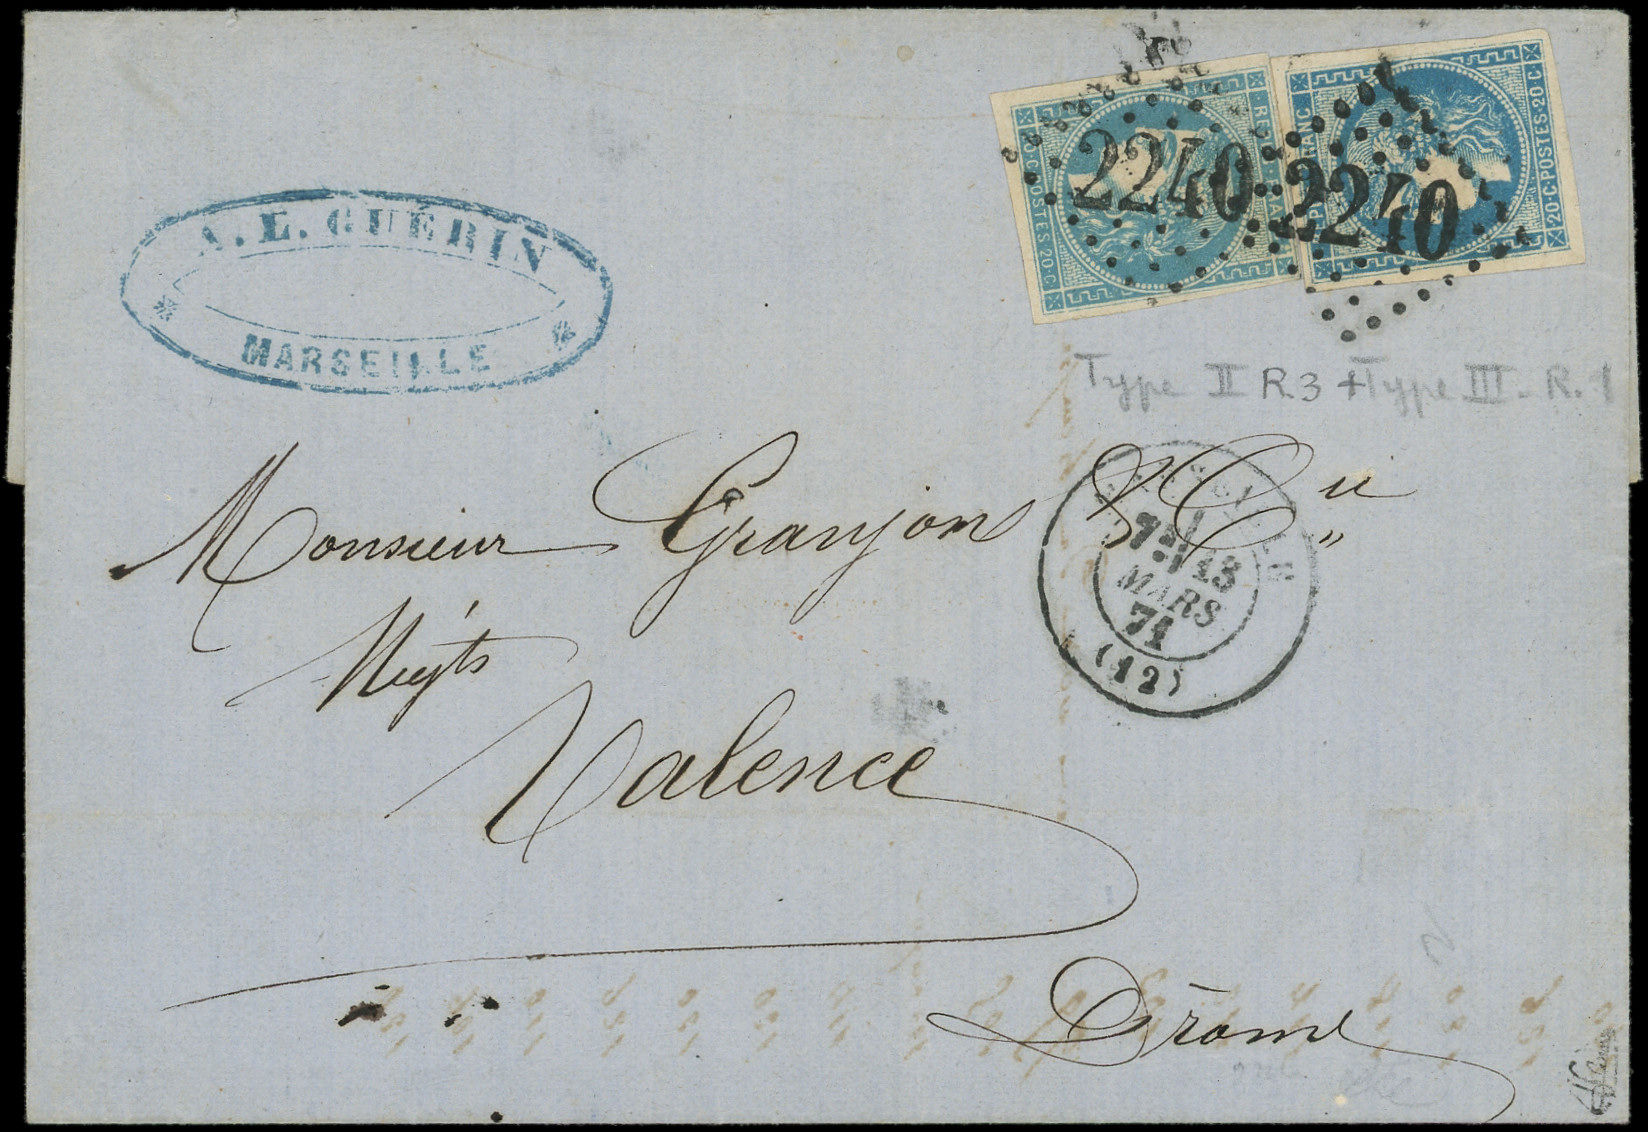 A. E. GUÉRIN
MARSEILLE
20·C·POSTES·20·C
2240
2240
REPUB FRANC
20·C·POSTES·20·C
Type II R.3 + Type III - R.1
Monsieur Granjon & Cie
Négts
Valence
Drome
MARSEILLE
13
MARS
71
(12)